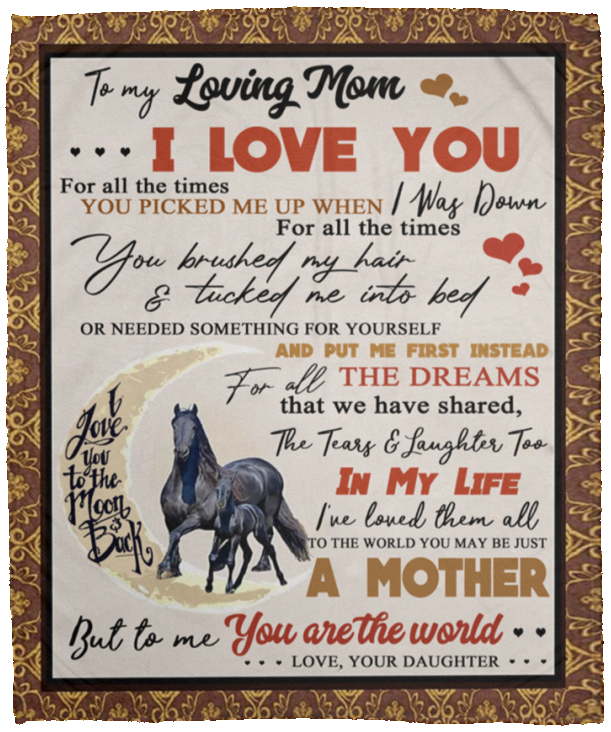 To my Loving Mom
I LOVE YOU
For all the times
YOU PICKED ME UP WHEN I Was Down
For all the times
You brushed my hair
& tucked me into bed
OR NEEDED SOMETHING FOR YOURSELF
AND PUT ME FIRST INSTEAD
For all THE DREAMS
that we have shared,
The Tears & Laughter Too
IN MY LIFE
I've loved them all
TO THE WORLD YOU MAY BE JUST
A MOTHER
But to me You are the world
LOVE, YOUR DAUGHTER
I
Love
you
to the
Moon
&
Back